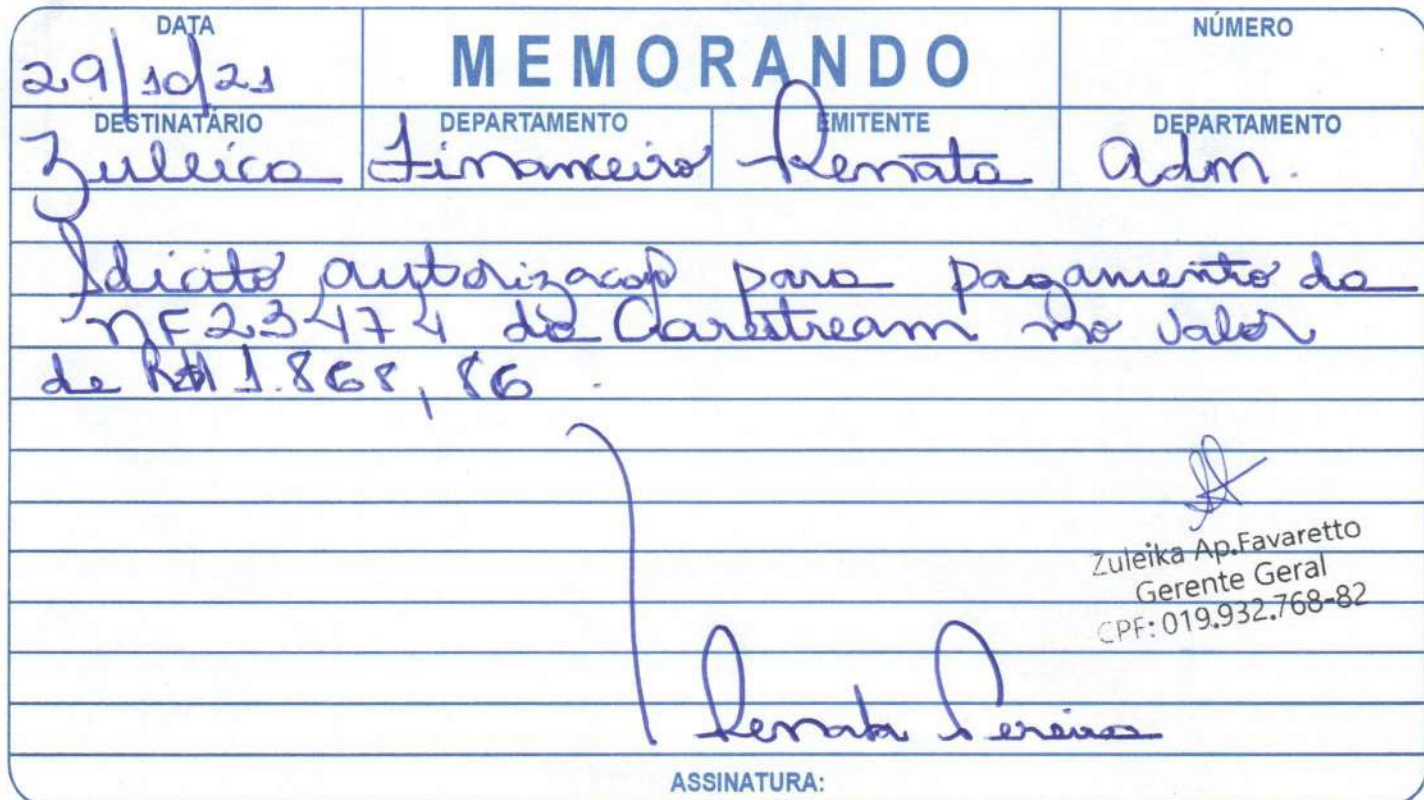 DATA
29/10/21
MEMORANDO
NÚMERO
DESTINATÁRIO
Zuleica
DEPARTAMENTO
Financeiro
EMITENTE
Renata
DEPARTAMENTO
Adm.
Solicito autorizacao para pagamento da
NF 23474 da Carestream no valor
de R$ 1.868,86.
Zuleika Ap.Favaretto
Gerente Geral
CPF: 019.932.768-82
Renata Pereira
ASSINATURA: